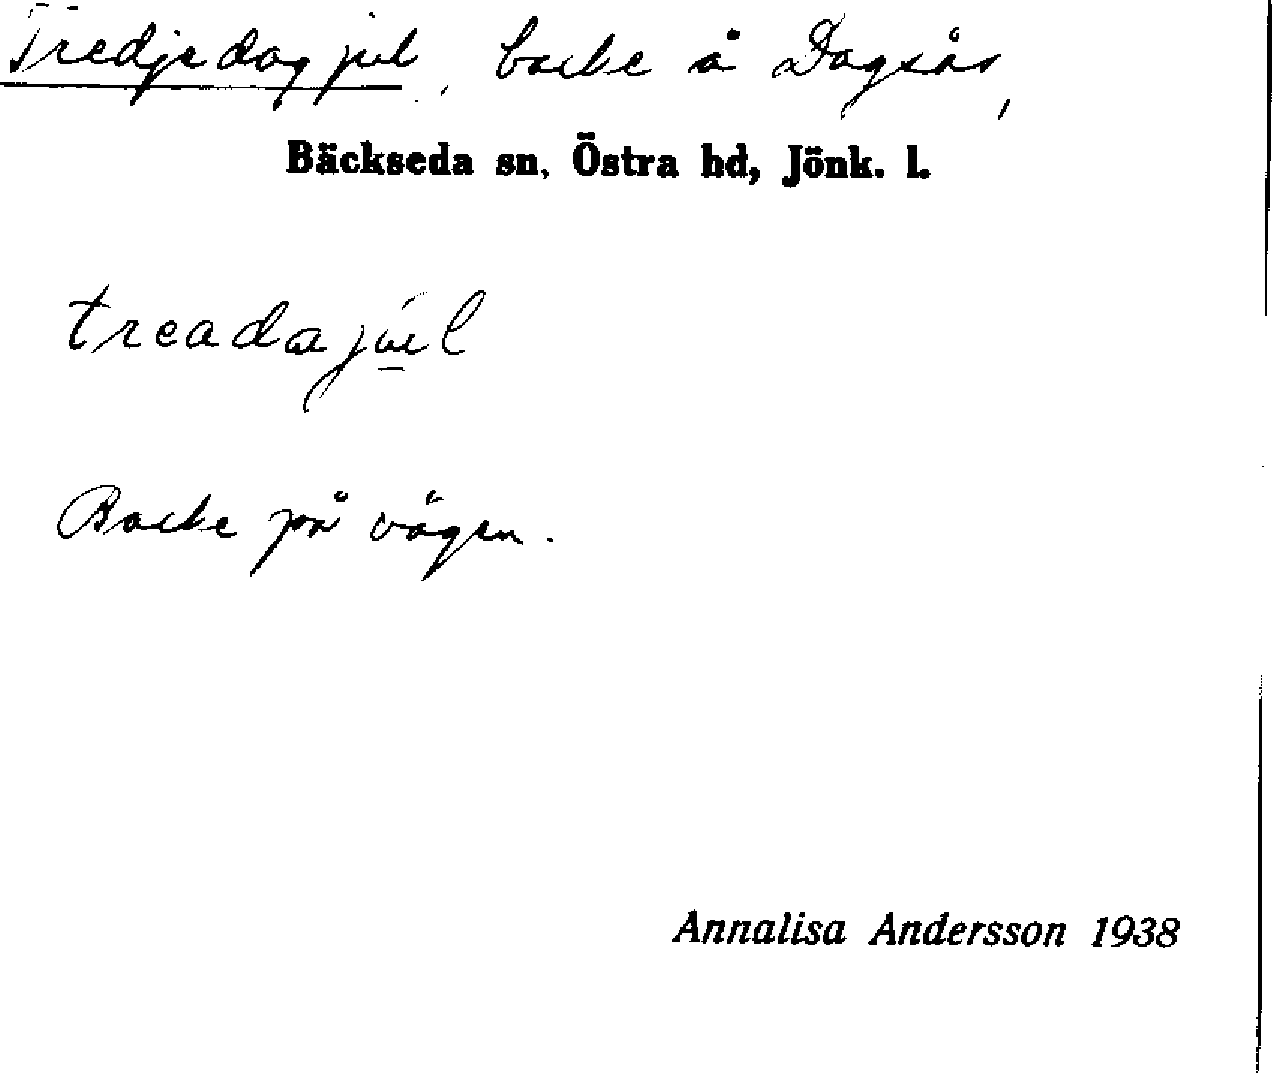 Tredjedag jul, backe å Dagsås,
Bäckseda sn, Östra hd, Jönk. l.
treadajul
Backe på vägen.
Annalisa Andersson 1938